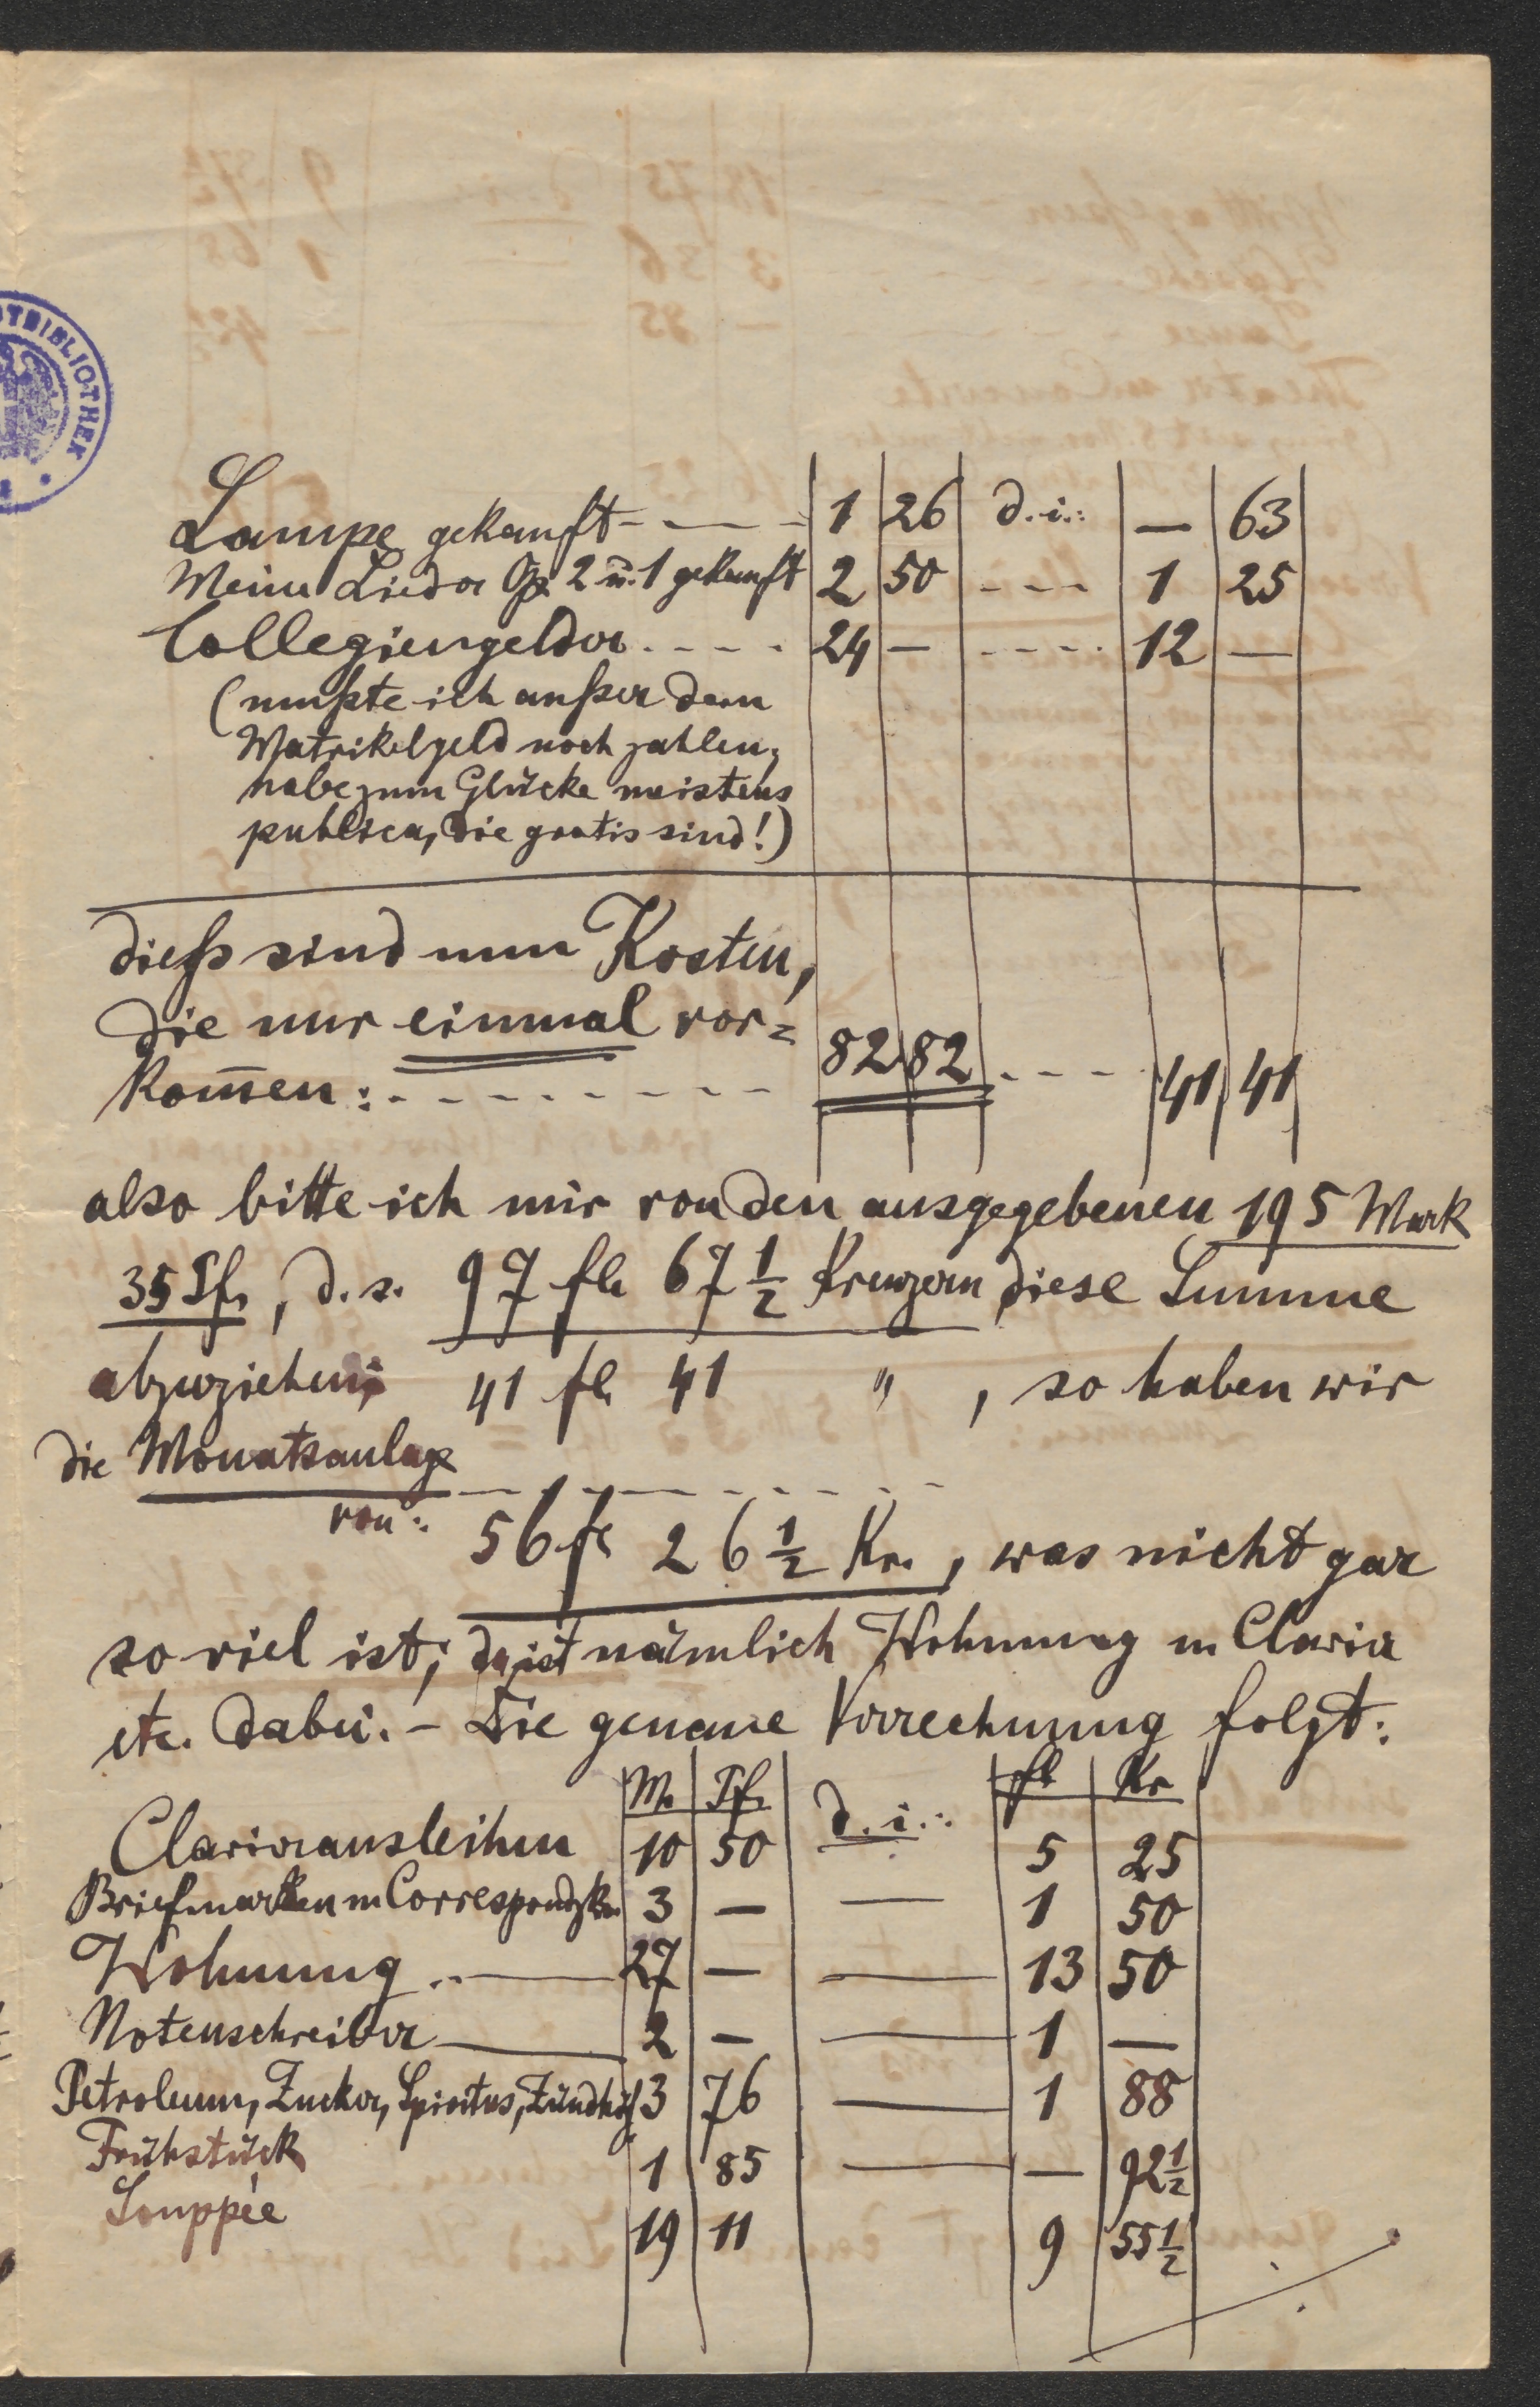 OTBIBLIOTHEK
Lampe gekauft - — - 1 26 d. i.: — 63
Meine Lieder Op 2 u. 1 gekauft 2 50 - - - 1 25
Collegiengelder . - - - . 24 — - - - - 12 —
(mußte ich außer dem
Matrikelgeld noch zahlen;
habe zum Glücke meistens
publica, die gratis sind!)
dieß sind nun Kosten,
die nur einmal vor=
kom̄en: - - - - - - - - 82 82 - - - 41 41
also bitte ich mir von den ausgegebenen 195 Mark
35 Pf., d. s. 97 fl 67 ½ Kreuzern diese Summe
abzuziehen; 41 fl 41 " , so haben wir
die Monatsanlage - - - - - - - - -
von: 56 fl 26 ½ Kr., was nicht gar
so viel ist; da ist nämlich Wohnung u Clavier
etc. dabei. – Die genaue Verrechnung folgt:
M. Pf. d. i.: fl Kr
Clavierausleihen 10 50 5 25
Briefmarken u Correspondzkn 3 — — 1 50
Wohnung .. — 27 — — 13 50
Notenschreiber — 2 — — 1 —
Petroleum, Zucker, Spiritus, Zündhölz 3 76 — 1 88
Frühstück 1 85 — — 92½
Souppée 19 11 9 55½